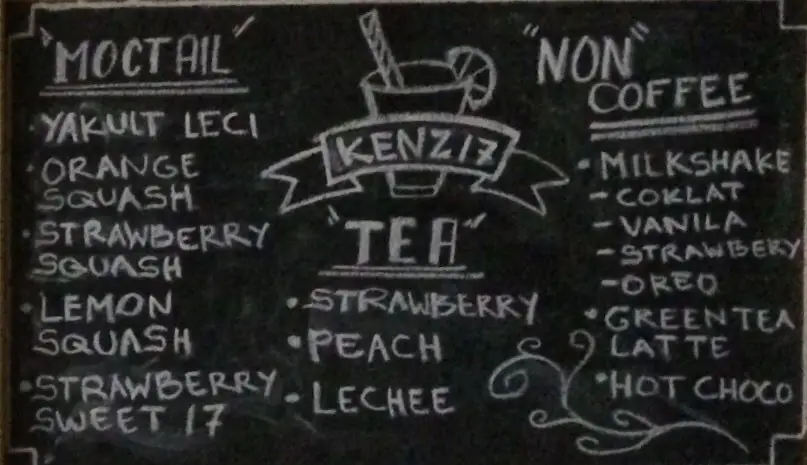 "MOCTAIL"
· YAKULT LECI
· ORANGE
SQUASH
· STRAWBERRY
SQUASH
· LEMON
SQUASH
· STRAWBERRY
SWEET 17
KENZ17
"TEA"
· STRAWBERRY
· PEACH
· LECHEE
"NON"
COFFEE
· MILKSHAKE
- COKLAT
- VANILA
- STRAWBERY
- OREO
· GREEN TEA
LATTE
· HOT CHOCO